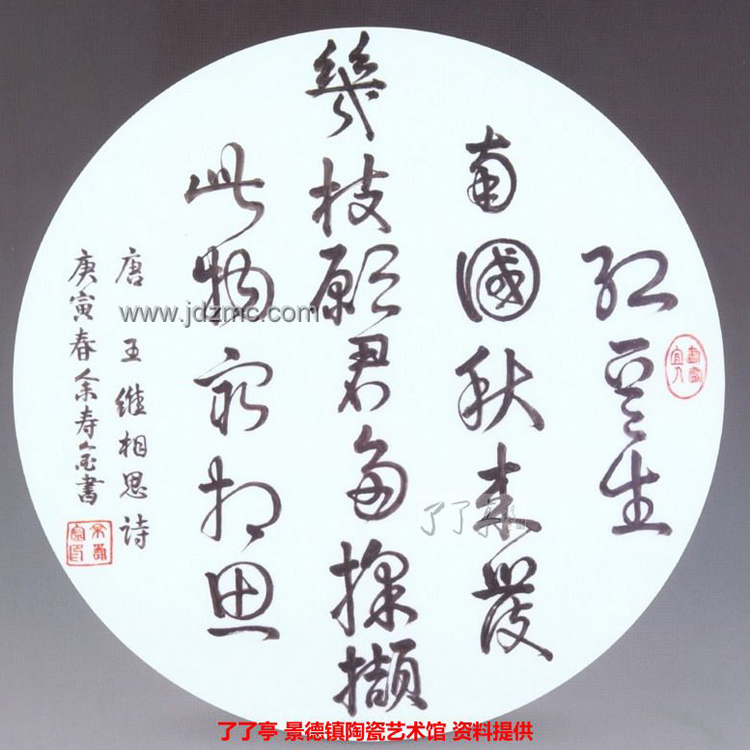 红豆生
南國秋来發
幾枝願君多採擷
此物最相思
唐 王维相思詩
庚寅春余寿金書
www.jdzmc.com
了了亭
了了亭 景德镇陶瓷艺术馆 资料提供